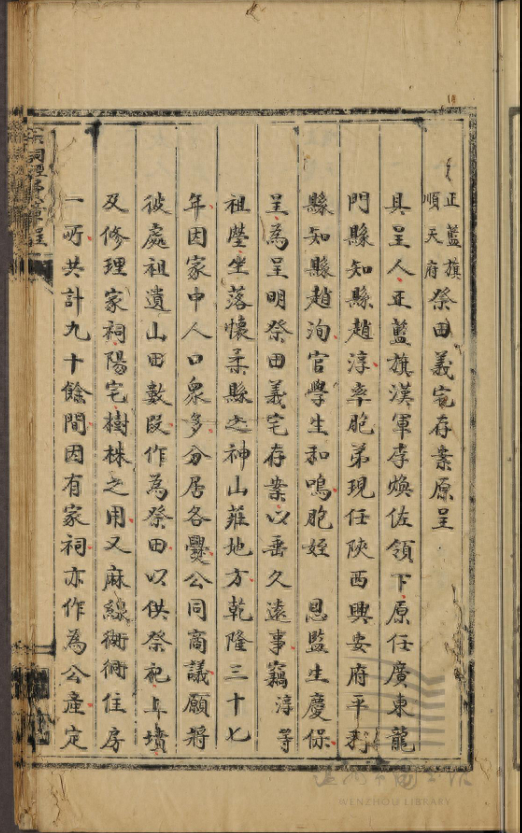 正藍旗順天府祭田義宅存案原呈
具呈人正藍旗漢軍李煥佐領下原任廣東龍
門縣知縣趙淳率胞弟現任陝西興安府平利
縣知縣趙洵官學生和鳴胞姪 恩監生慶保
呈為呈明祭田義宅存案以垂久遠事竊淳等
祖塋坐落懷柔縣之神山莊地方乾隆三十七
年因家中人口衆多分居各爨公同商議願將
彼處祖遺山田數段作為祭田以供祭祀上墳
及修理家祠陽宅樹株之用又麻線衚衕住房
一所共計九十餘間因有家祠亦作為公產定
WENZHOU LIBRARY